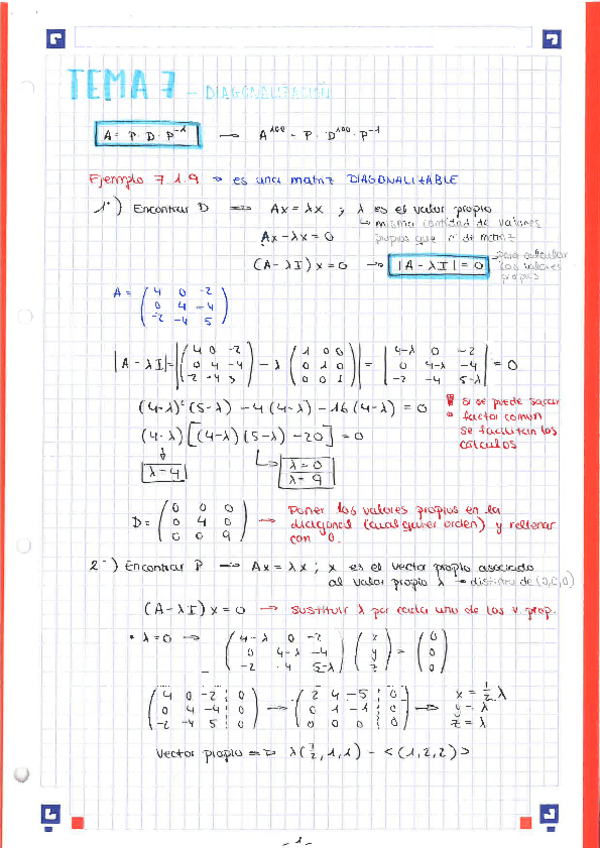 TEMA 7 - DIAGONALIZACIÓN
A = P · D · P⁻¹ → A¹⁰⁰ = P · D¹⁰⁰ · P⁻¹
Ejemplo 7.1.9 → es una matriz DIAGONALIZABLE
1º) Encontrar D ⟹ Ax = λx ; λ es el valor propio
↳ misma cantidad de valores
propios que nº de matriz
Ax - λx = 0
(A - λI) x = 0 → |A - λI| = 0
para calcular
los valores
propios
A = ( 4 0 -2
0 4 -4
-2 -4 5 )
|A - λI| = |( 4 0 -2 ; 0 4 -4 ; -2 -4 5 ) - λ ( 1 0 0 ; 0 1 0 ; 0 0 1 )| = | 4-λ 0 -2 ; 0 4-λ -4 ; -2 -4 5-λ | = 0
(4-λ)²(5-λ) - 4(4-λ) - 16(4-λ) = 0
(4-λ)[(4-λ)(5-λ) - 20] = 0
Si se puede sacar
factor común
se facilitan los
cálculos
λ=4
λ=0
λ=9
D = ( 0 0 0
0 4 0
0 0 9 )
→ Poner los valores propios en la
diagonal (cualquier orden) y rellenar
con 0.
2º) Encontrar P → Ax = λx ; x es el vector propio asociado
al valor propio λ → distinto de (0,0,0)
(A - λI) x = 0 → sustituir λ por cada uno de los v. prop.
• λ=0 → ( 4-λ 0 -2 ; 0 4-λ -4 ; -2 -4 5-λ ) ( x ; y ; z ) = ( 0 ; 0 ; 0 )
( 4 0 -2 0 ; 0 4 -4 0 ; -2 -4 5 0 ) → ( 2 4 -5 0 ; 0 1 -1 0 ; 0 0 0 0 ) → x = ½λ
y = λ
z = λ
Vector propio ⟹ λ(½,1,1) - <(1,2,2)>
-1-